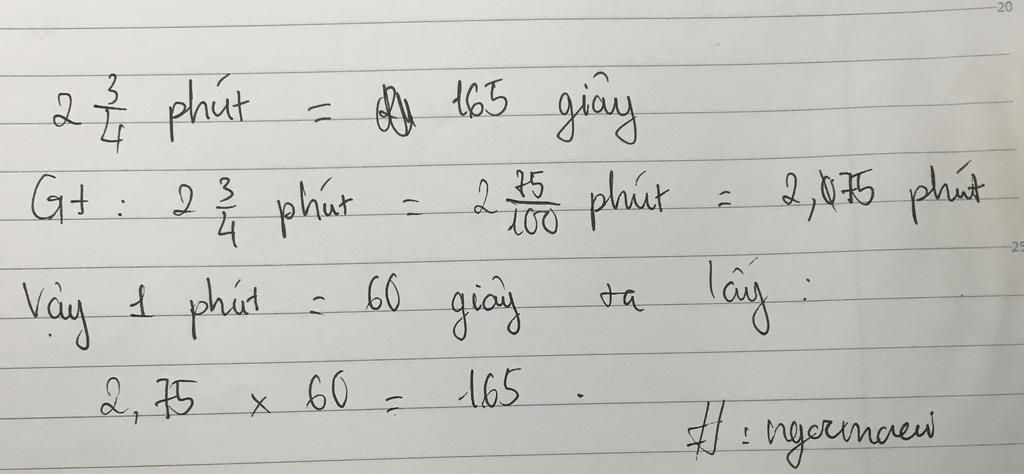 20
2 3/4 phút = 165 giây
Gt : 2 3/4 phút = 2 75/100 phút = 2,75 phút
25
Vậy 1 phút = 60 giây ta lấy :
2,75 x 60 = 165 .
# : ngơmaew